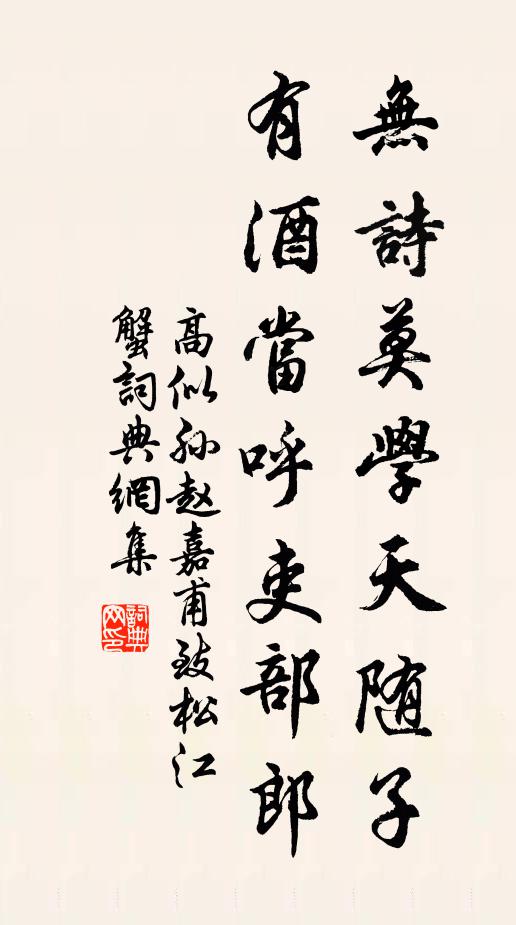 無詩莫學天随子
有酒當呼吏部郎
高似孙赵嘉甫致松江
蟹詞典網集
詞典
网印